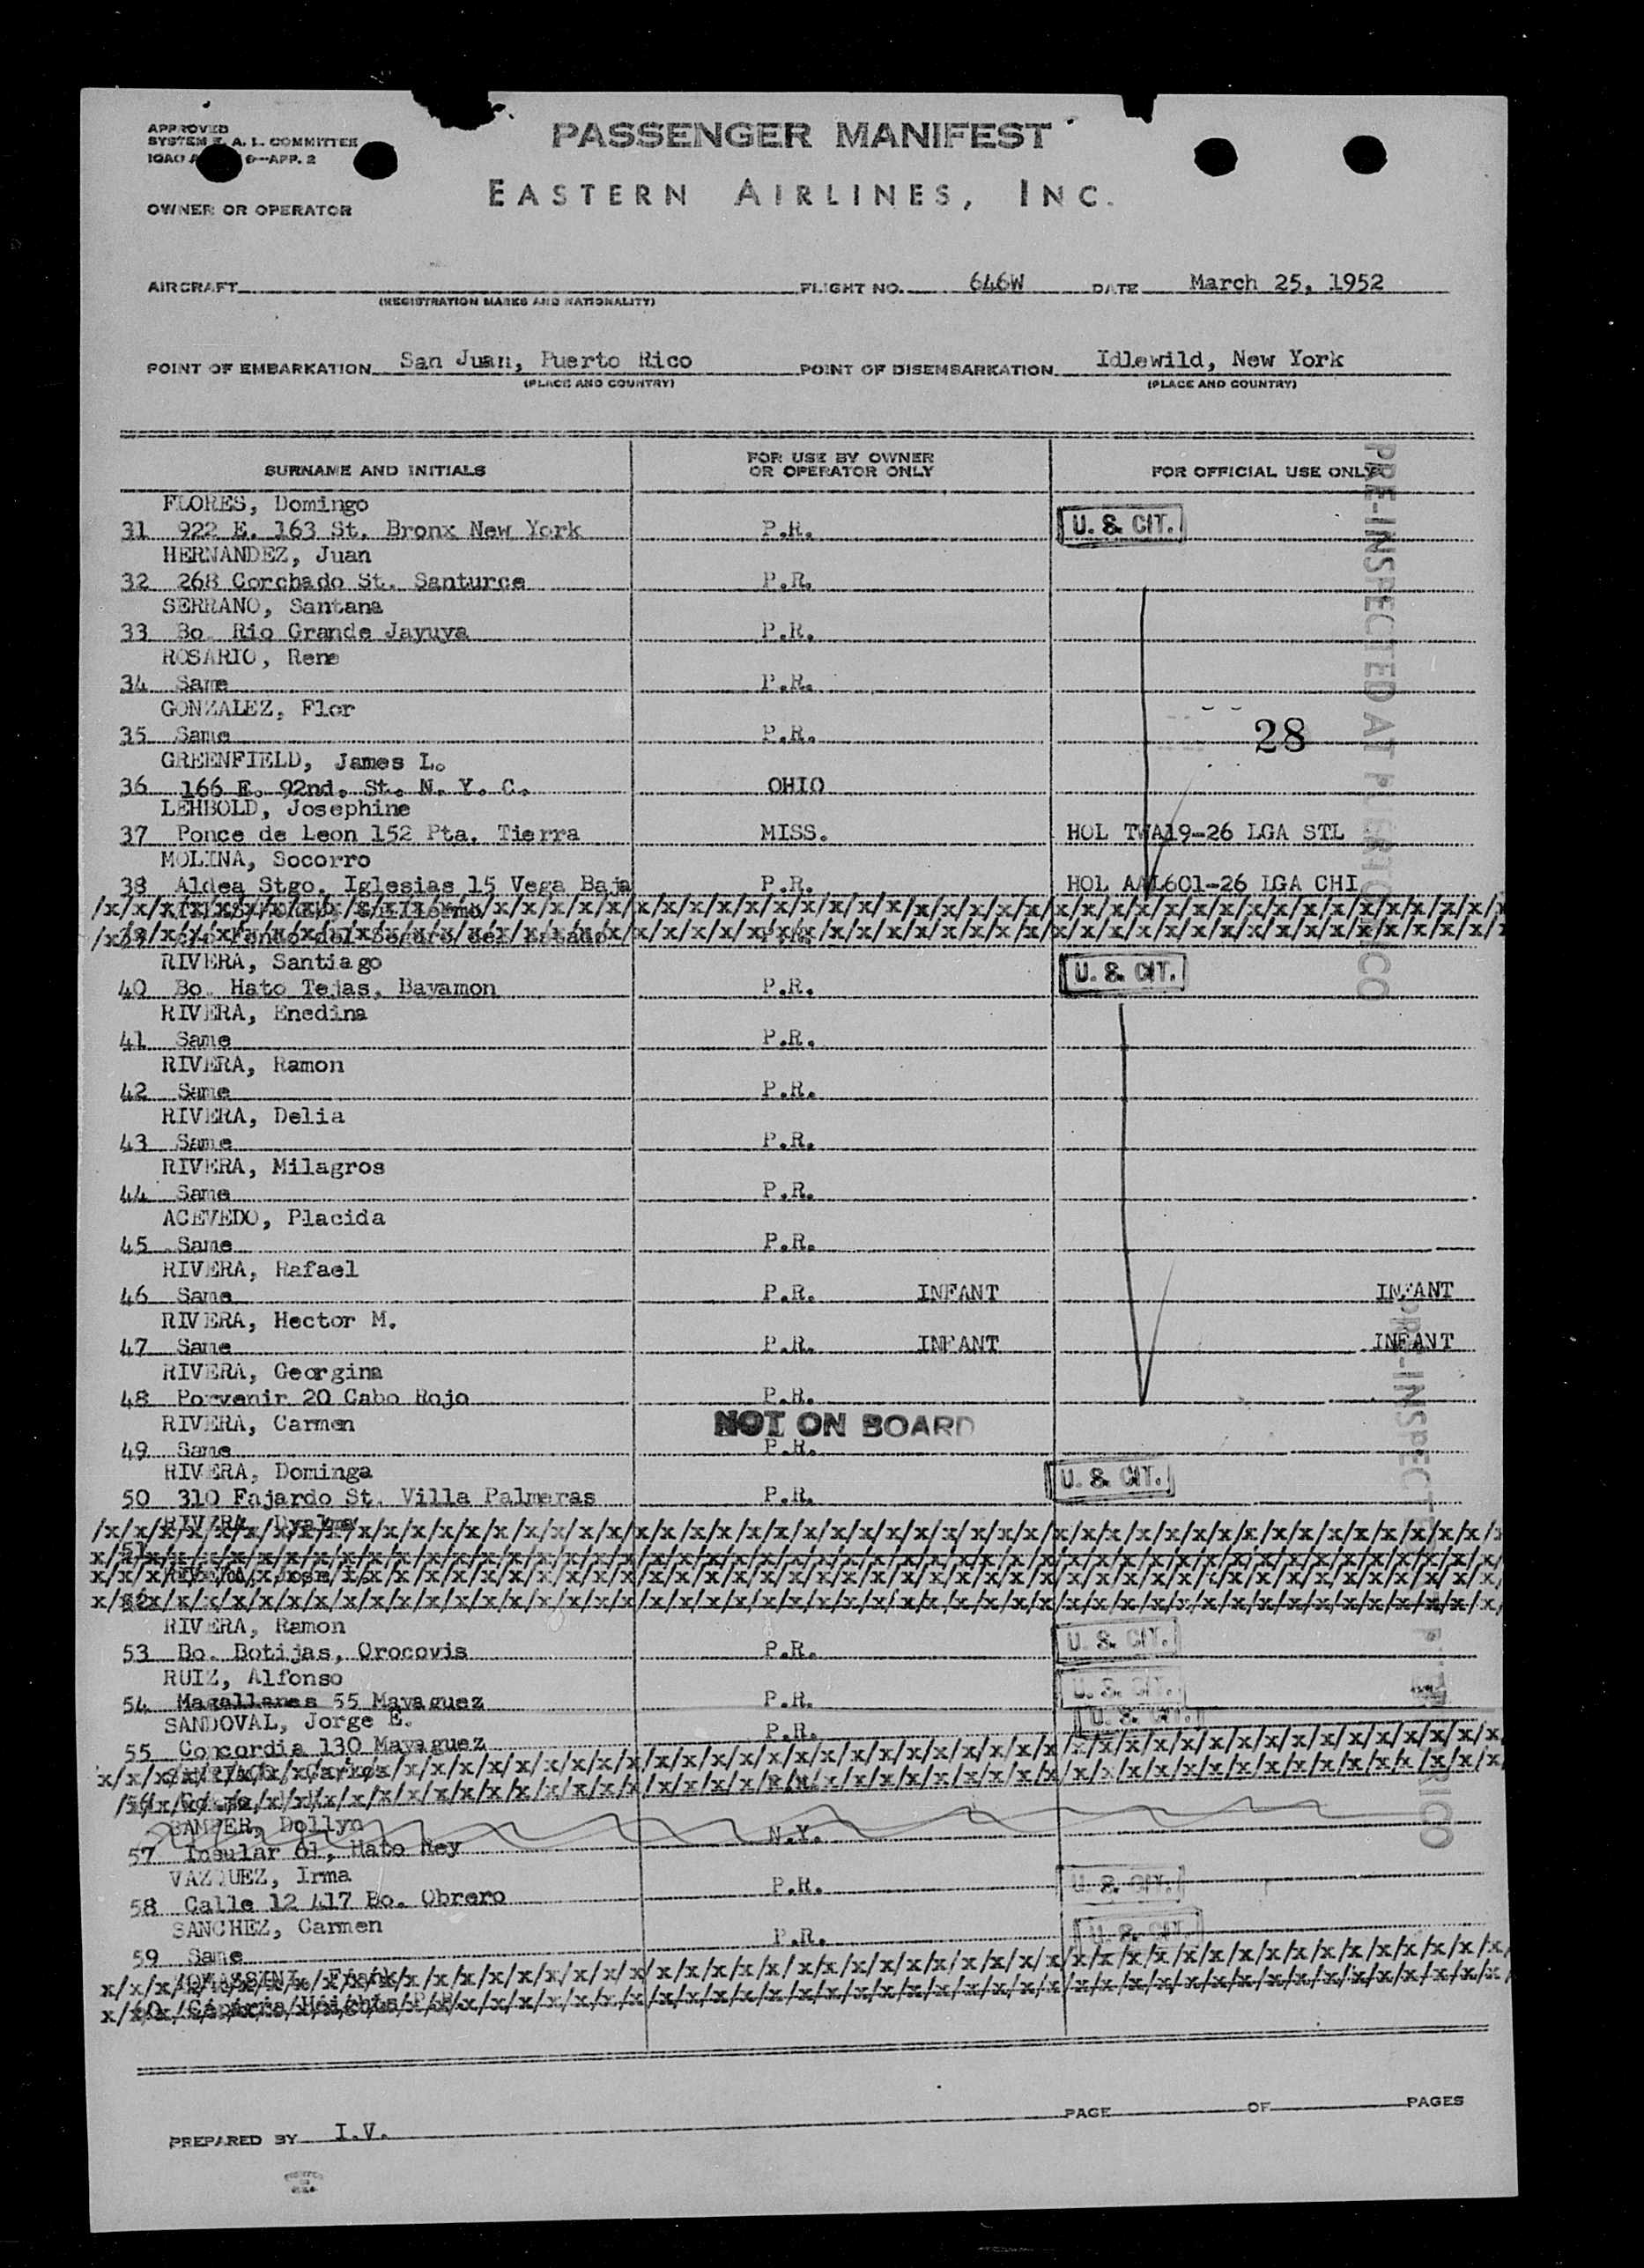 APPROVED
SYSTEM E. A. L. COMMITTEE
ICAO 9—APP. 2
PASSENGER MANIFEST
EASTERN AIRLINES, INC.
OWNER OR OPERATOR
AIRCRAFT FLIGHT NO. 646W DATE March 25, 1952
(REGISTRATION MARKS AND NATIONALITY)
POINT OF EMBARKATION San Juan, Puerto Rico POINT OF DISEMBARKATION Idlewild, New York
(PLACE AND COUNTRY) (PLACE AND COUNTRY)
SURNAME AND INITIALS FOR USE BY OWNER OR OPERATOR ONLY FOR OFFICIAL USE ONLY
PRE-INSPECTED AT PUERTO RICO
FLORES, Domingo
31 922 E. 163 St. Bronx New York P.R. U. S. CIT.
HERNANDEZ, Juan
32 268 Corchado St. Santurce P.R.
SERRANO, Santana
33 Bo. Rio Grande Jayuya P.R.
ROSARIO, Rene
34 Same P.R.
GONZALEZ, Flor
35 Same P.R. 28
GREENFIELD, James L.
36 166 E. 92nd. St. N. Y. C. OHIO
LEHBOLD, Josephine
37 Ponce de Leon 152 Pta. Tierra MISS. HOL TWA19-26 LGA STL
MOLINA, Socorro
38 Aldea Stgo. Iglesias 15 Vega Baja P.R. HOL AAL601-26 LGA CHI
39 Fondo del Seguro del Estado P.R.
RIVERA, Santiago U. S. CIT.
40 Bo. Hato Tejas, Bayamon P.R.
RIVERA, Enedina
41 Same P.R.
RIVERA, Ramon
42 Same P.R.
RIVERA, Delia
43 Same P.R.
RIVERA, Milagros
44 Same P.R.
ACEVEDO, Placida
45 Same P.R.
RIVERA, Rafael
46 Same P.R. INFANT INFANT
RIVERA, Hector M.
47 Same P.R. INFANT INFANT
PRE-INSPECTED AT PUERTO RICO
RIVERA, Georgina
48 Porvenir 20 Cabo Rojo P.R.
RIVERA, Carmen NOT ON BOARD
49 Same P.R.
RIVERA, Dominga U. S. CIT.
50 310 Fajardo St. Villa Palmeras P.R.
RIVERA,
51
52
RIVERA, Ramon
53 Bo. Botijas, Orocovis P.R. U. S. CIT.
RUIZ, Alfonso
54 Magallanes 55 Mayaguez P.R. U. S. CIT.
SANDOVAL, Jorge E. U. S. CIT.
55 Concordia 130 Mayaguez P.R.
Carlos
56
SAMPER, Dollyn
57 Insular 61, Hato Rey N.Y.
VAZQUEZ, Irma
58 Calle 12 417 Bo. Obrero P.R. U. S. CIT.
SANCHEZ, Carmen
59 Same P.R. U. S. CIT.
TOMASSINI, Frank
60 Caparra Heights P.R.
PAGE OF PAGES
PREPARED BY I.V.